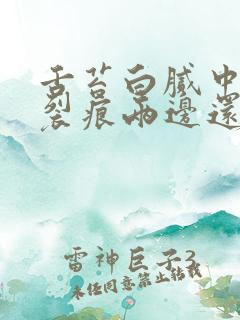 舌苔白腻中
裂痕兩邊還
雷神巨子3
未经同意禁止转载